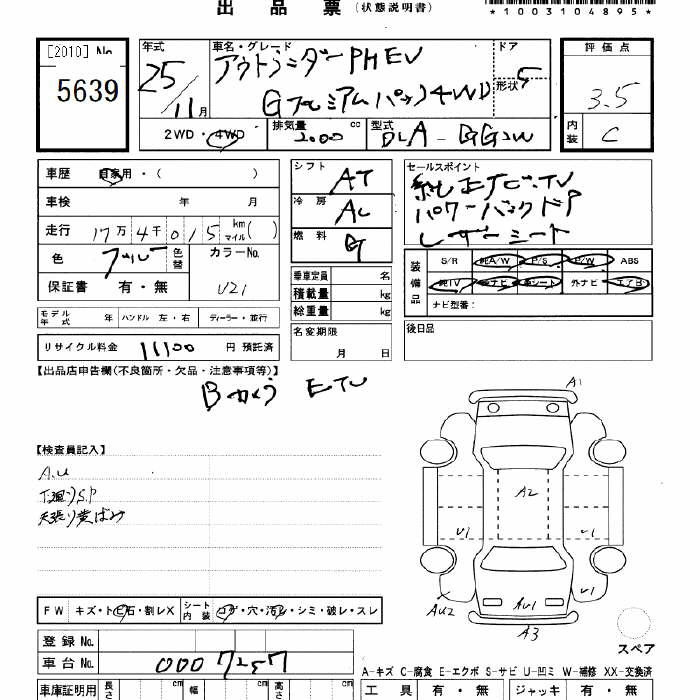 出品票(状態説明書)
*1003104895*
[2010] No 5639
年式 25/11月
車名・グレード アウトランダーPHEV
Gプレミアムパック4WD
ドア 5
形状
2WD・4WD
排気量 2000 cc
型式 DLA-GG2W
評価点 3.5
内装 C
車歴 自家用・( )
車検 年 月
走行 17万4千015 km マイル( )
色 ブルー 色替
カラーNo. U21
保証書 有・無
モデル年式 年 ハンドル 左・右 ディーラー・並行
リサイクル料金 11100 円 預託済
シフト AT
冷房 AC
燃料 G
乗車定員 名
積載量 kg
総重量 kg
名変期限 月 日
セールスポイント
純正ナビ.TV
パワーバックドア
レザーシート
装備品 S/R 純A/W P/S P/W ABS
純TV 純ナビ 革シート 外ナビ エアB
ナビ型番:
後日品
【出品店申告欄(不良箇所・欠品・注意事項等)】
Bカメラ ETC
【検査員記入】
A.U
下廻りS.P
天張り黄ばみ
FW キズ・トビ石・割レX
シート内装 コゲ・穴・汚レ・シミ・破レ・スレ
登録No.
車台No. 0007257
車庫証明用 長さ cm 幅 cm 高さ cm
A1
A2
U1
U1
AU2
AU1
A1
A3
スペア
A-キズ C-腐食 E-エクボ S-サビ U-凹ミ W-補修 XX-交換済
工具 有・無 ジャッキ 有・無